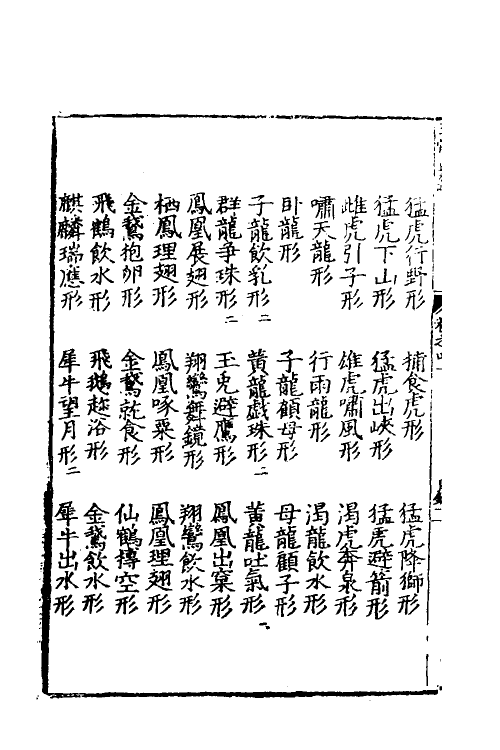 猛虎行野形　捕食虎形　猛虎降獅形
猛虎下山形　猛虎出峽形　猛虎避箭形
雌虎引子形　雄虎嘯風形　渴虎奔泉形
嘯天龍形　行雨龍形　渴龍飲水形
卧龍形　子龍顧母形　母龍顧子形
子龍飲乳形二　黃龍戲珠形二　黃龍吐氣形
群龍爭珠形二　玉兎避鷹形　鳳凰出窠形
鳳凰展翅形　翔鸞舞鏡形　翔鸞飲水形
栖鳳理翅形　鳳凰啄粟形　鳳凰理翅形
金鵞抱卵形　金鵞就食形　仙鶴摶空形
飛鵝飲水形　飛鵝趂浴形　金鵞飲水形
麒麟瑞應形　犀牛望月形二　犀牛出水形